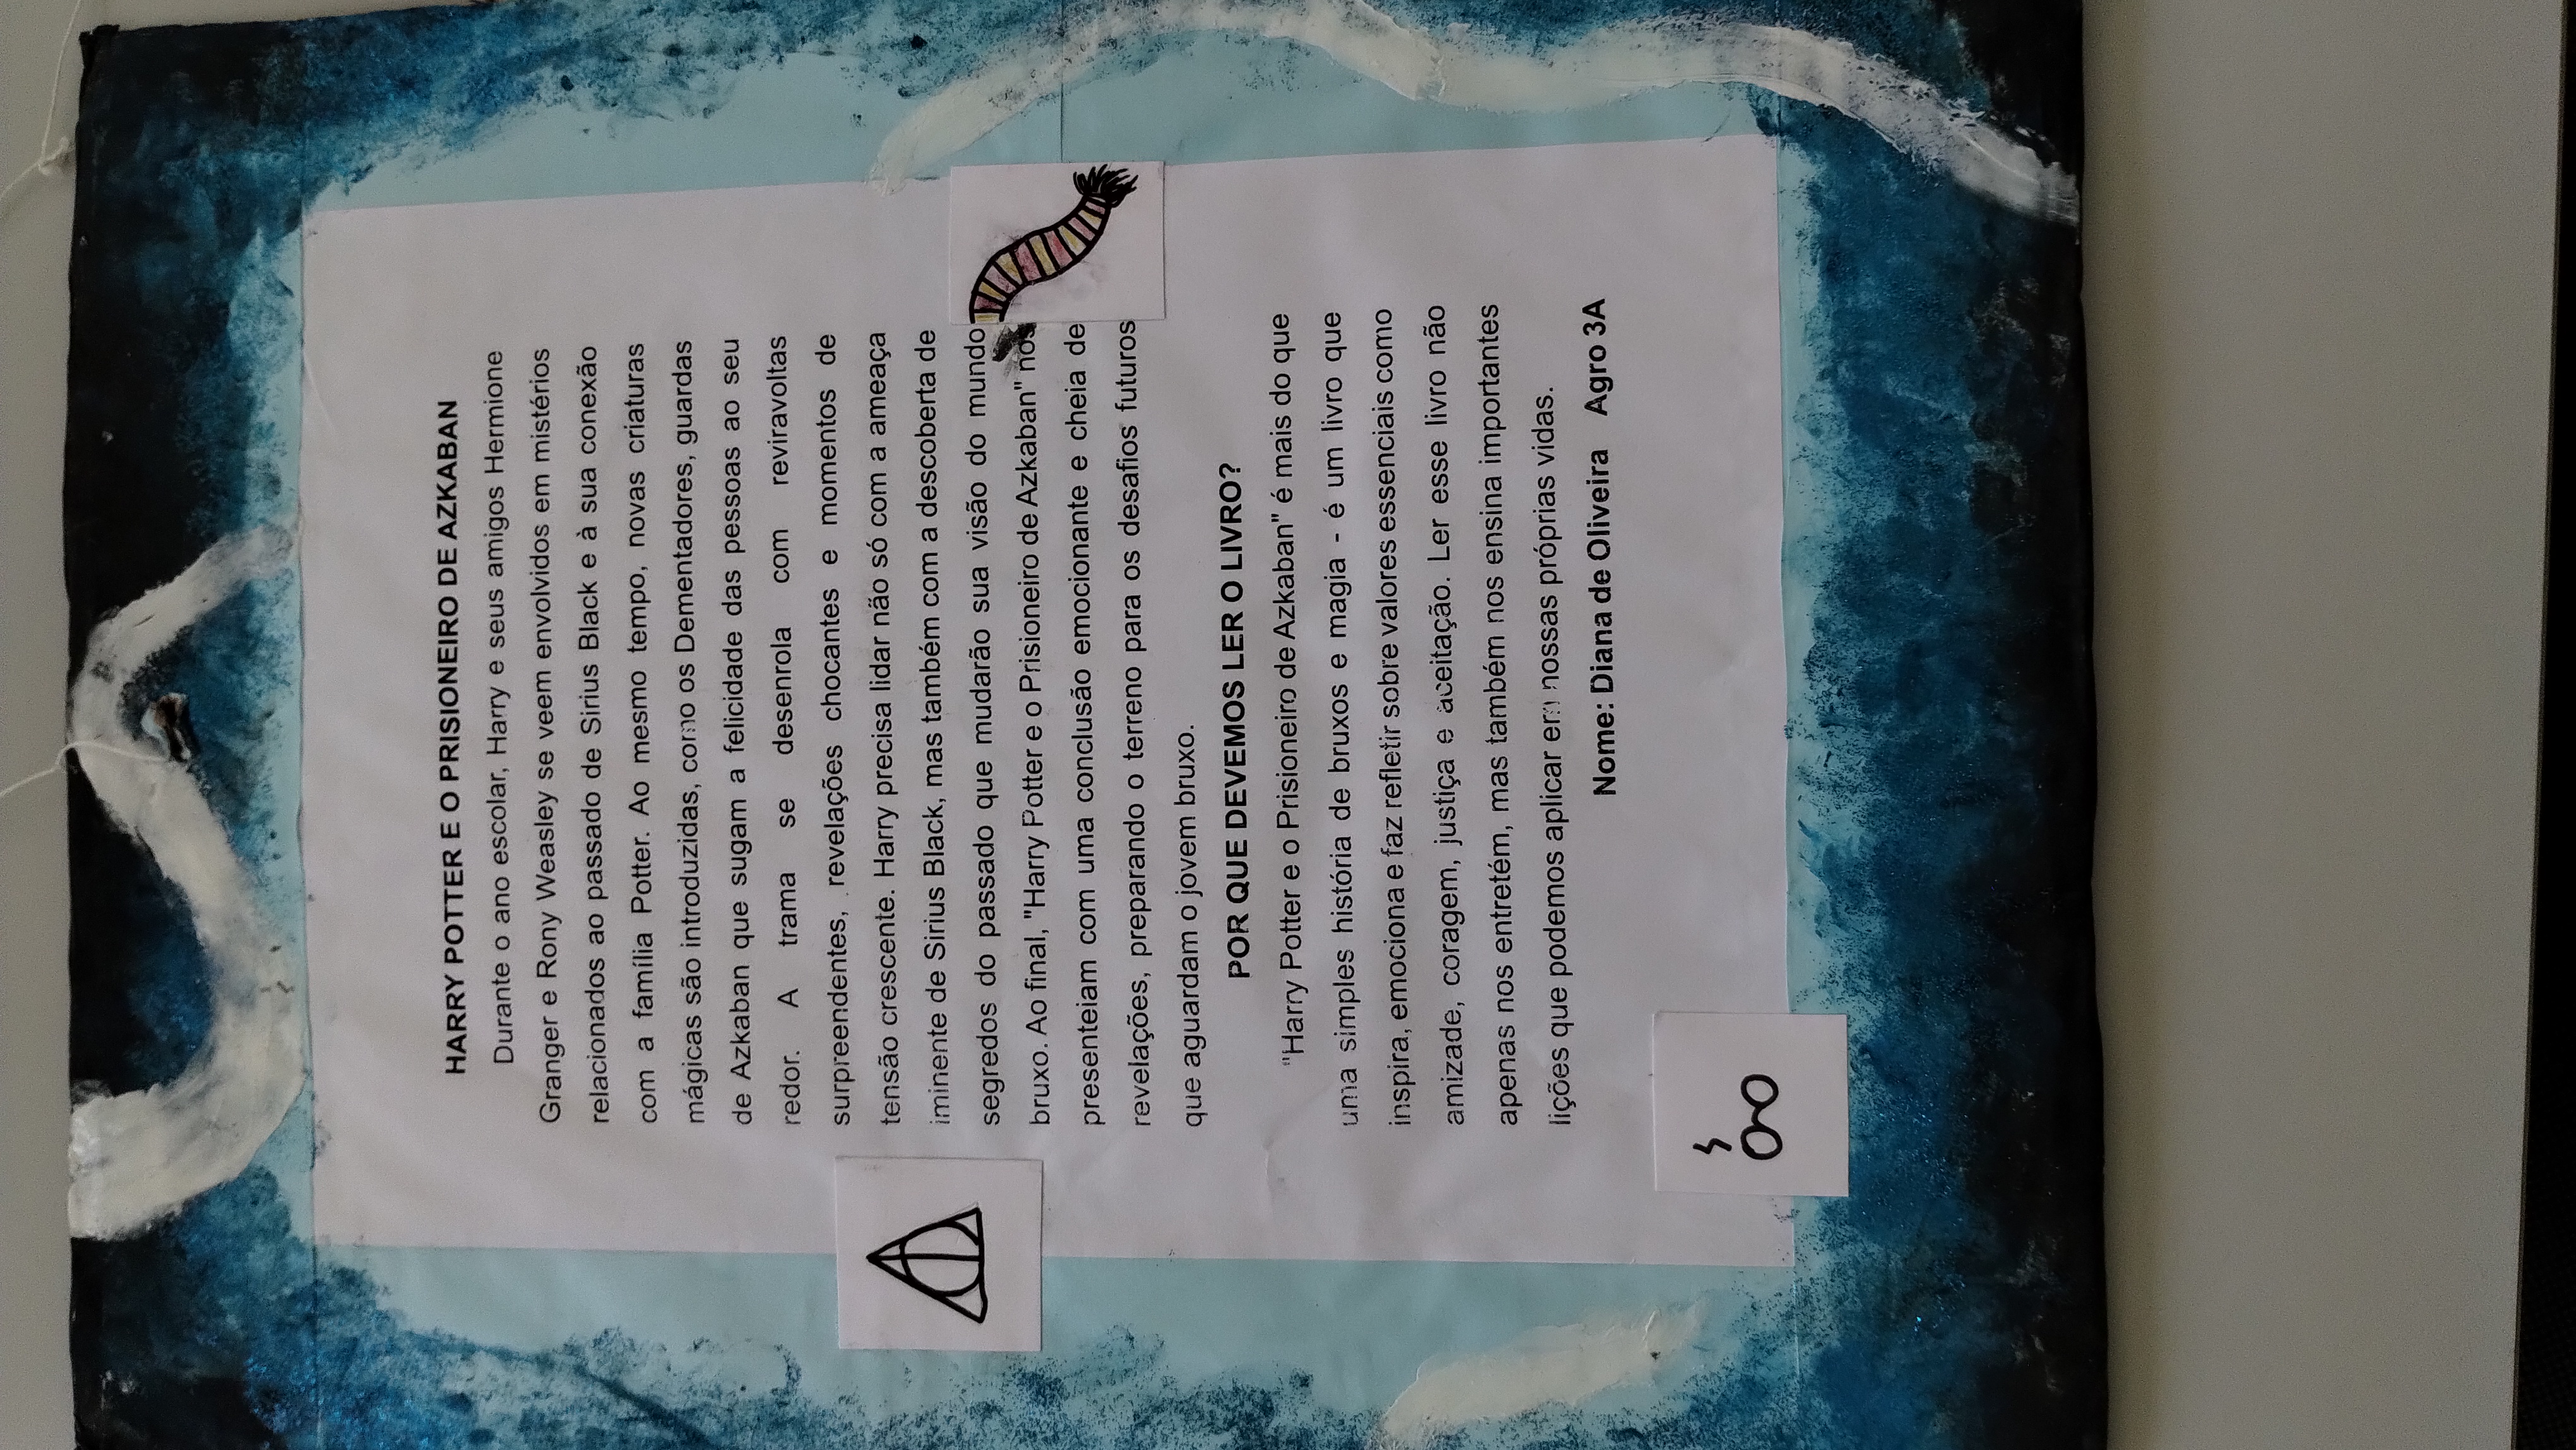 HARRY POTTER E O PRISIONEIRO DE AZKABAN
Durante o ano escolar, Harry e seus amigos Hermione
Granger e Rony Weasley se veem envolvidos em mistérios
relacionados ao passado de Sirius Black e à sua conexão
com a família Potter. Ao mesmo tempo, novas criaturas
mágicas são introduzidas, como os Dementadores, guardas
de Azkaban que sugam a felicidade das pessoas ao seu
redor. A trama se desenrola com reviravoltas
surpreendentes, revelações chocantes e momentos de
tensão crescente. Harry precisa lidar não só com a ameaça
iminente de Sirius Black, mas também com a descoberta de
segredos do passado que mudarão sua visão do mundo
bruxo. Ao final, "Harry Potter e o Prisioneiro de Azkaban" nos
presenteiam com uma conclusão emocionante e cheia de
revelações, preparando o terreno para os desafios futuros
que aguardam o jovem bruxo.
POR QUE DEVEMOS LER O LIVRO?
"Harry Potter e o Prisioneiro de Azkaban" é mais do que
uma simples história de bruxos e magia - é um livro que
inspira, emociona e faz refletir sobre valores essenciais como
amizade, coragem, justiça e aceitação. Ler esse livro não
apenas nos entretém, mas também nos ensina importantes
lições que podemos aplicar em nossas próprias vidas.
Nome: Diana de Oliveira Agro 3A